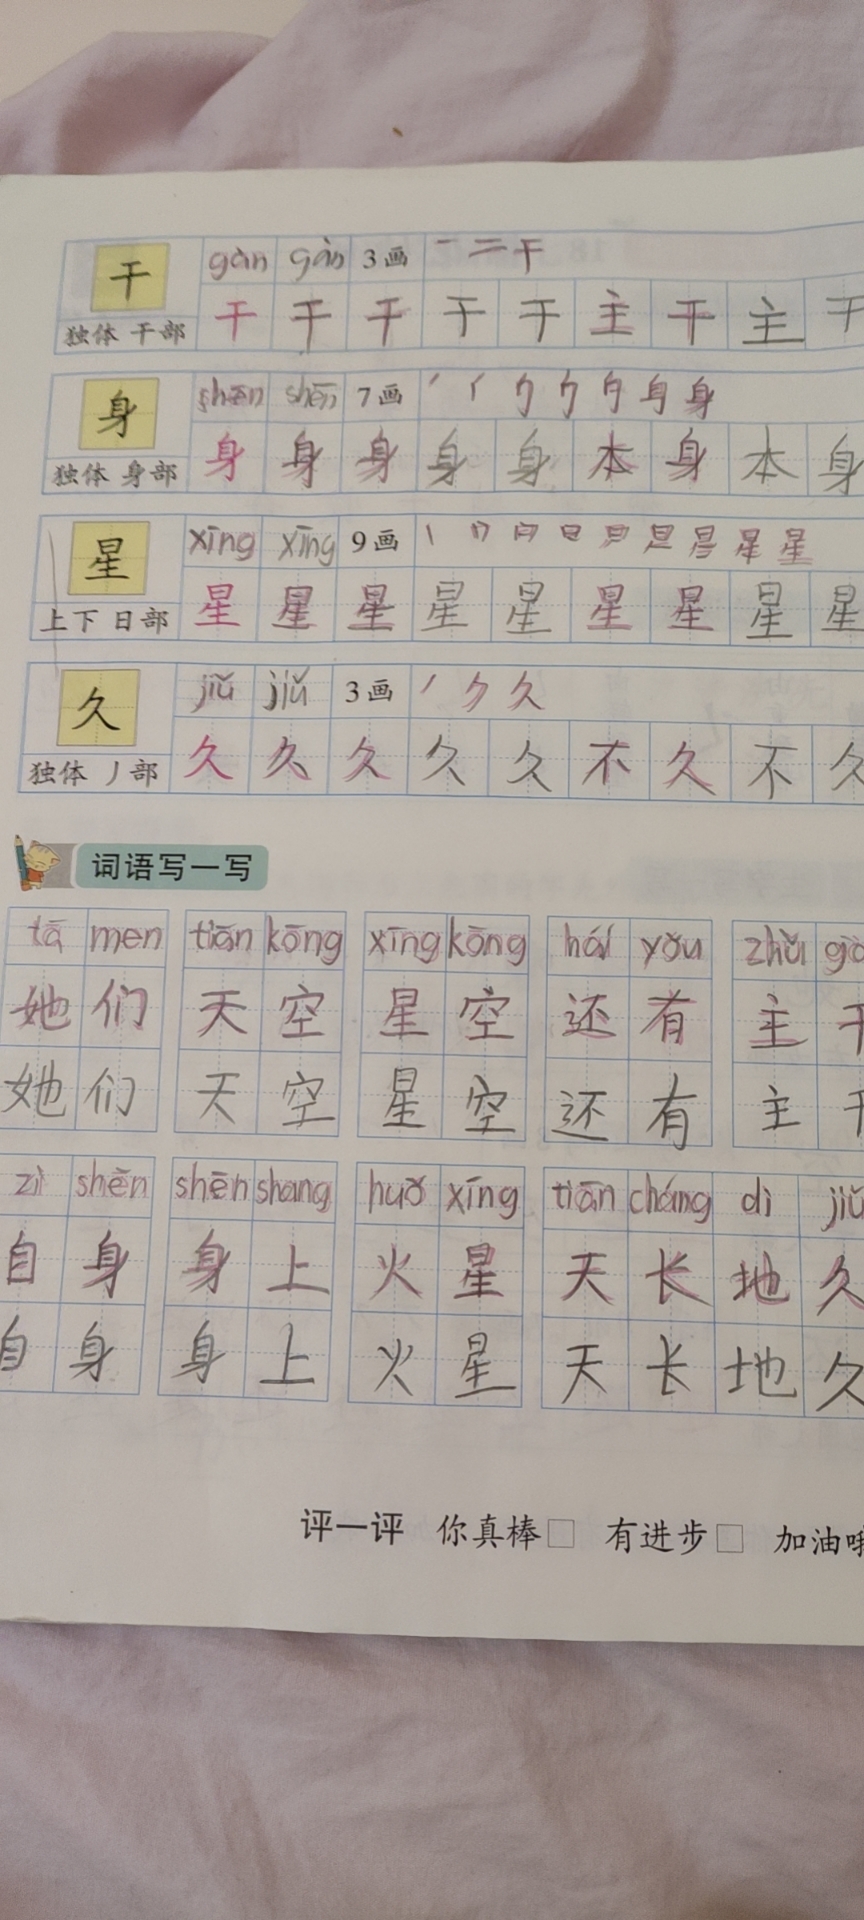 gàn gàn 3画 一 二 干
干 干 干 干 干 干 主 干 主 干
独体 干部
shēn shēn 7画 身
身 身 身 身 身 身 本 身 本 身
独体 身部
xīng xīng 9画 星
星 星 星 星 星 星 星 星 星 星
上下 日部
jiǔ jiǔ 3画 丿 ク 久
久 久 久 久 久 久 不 久 不 久
独体 丿部
词语写一写
tā men tiān kōng xīng kōng hái yǒu zhǔ gà
她们 天空 星空 还有 主干
她们 天空 星空 还有 主干
zì shēn shēn shang huǒ xīng tiān cháng dì jiǔ
自身 身上 火星 天长地久
自身 身上 火星 天长地久
评一评 你真棒□ 有进步□ 加油哦